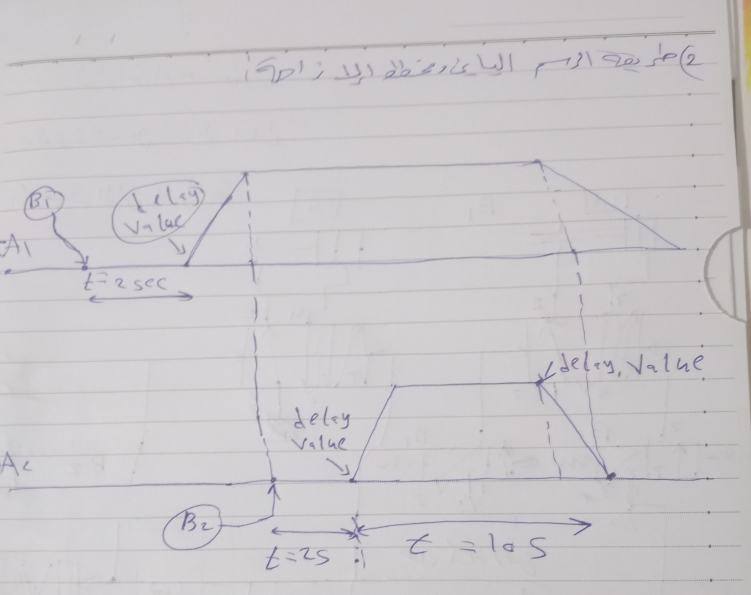 2) طريقة الرسم البياني ومخطط الازاحة:
B1
delay
value
A1
t=2sec
delay, value
delay
value
A2
B2
t=2s
t=10s